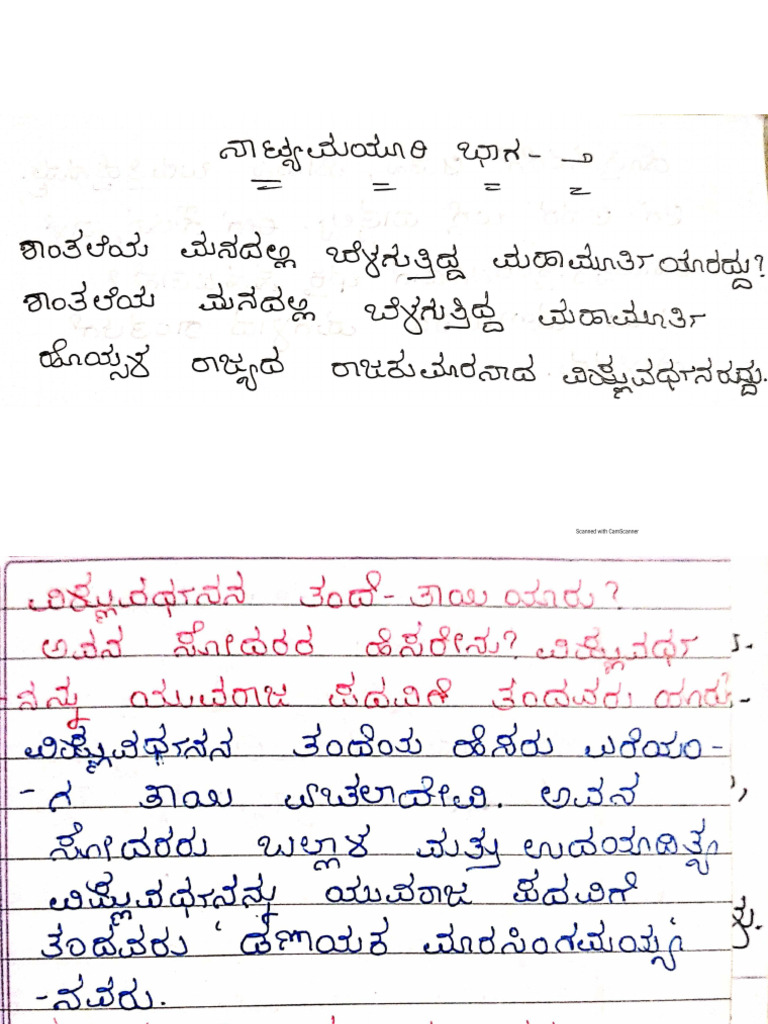 ನಾಟ್ಯಮಯೂರಿ ಭಾಗ-೨
ಶಾಂತಲೆಯ ಮನದಲ್ಲಿ ಬೆಳಗುತ್ತಿದ್ದ ಮಹಾಮೂರ್ತಿ ಯಾರದ್ದು?
ಶಾಂತಲೆಯ ಮನದಲ್ಲಿ ಬೆಳಗುತ್ತಿದ್ದ ಮಹಾಮೂರ್ತಿ
ಹೊಯ್ಸಳ ರಾಜ್ಯದ ರಾಜಕುಮಾರನಾದ ವಿಷ್ಣುವರ್ಧನರದ್ದು.
Scanned with CamScanner
ವಿಷ್ಣುವರ್ಧನನ ತಂದೆ-ತಾಯಿ ಯಾರು?
ಅವನ ಸೋದರರ ಹೆಸರೇನು? ವಿಷ್ಣುವರ್ಧ
ನನ್ನು ಯುವರಾಜ ಪದವಿಗೆ ತಂದವರು ಯಾರು?
ವಿಷ್ಣುವರ್ಧನನ ತಂದೆಯ ಹೆಸರು ಎರೆಯಂ-
-ಗ ತಾಯಿ ಏಚಲಾದೇವಿ. ಅವನ
ಸೋದರರು ಬಲ್ಲಾಳ ಮತ್ತು ಉದಯಾದಿತ್ಯ
ವಿಷ್ಣುವರ್ಧನನ್ನು ಯುವರಾಜ ಪದವಿಗೆ
ತಂದವರು 'ಡಣಾಯಕ ಮಾರಸಿಂಗಮಯ್ಯ'
-ನವರು.